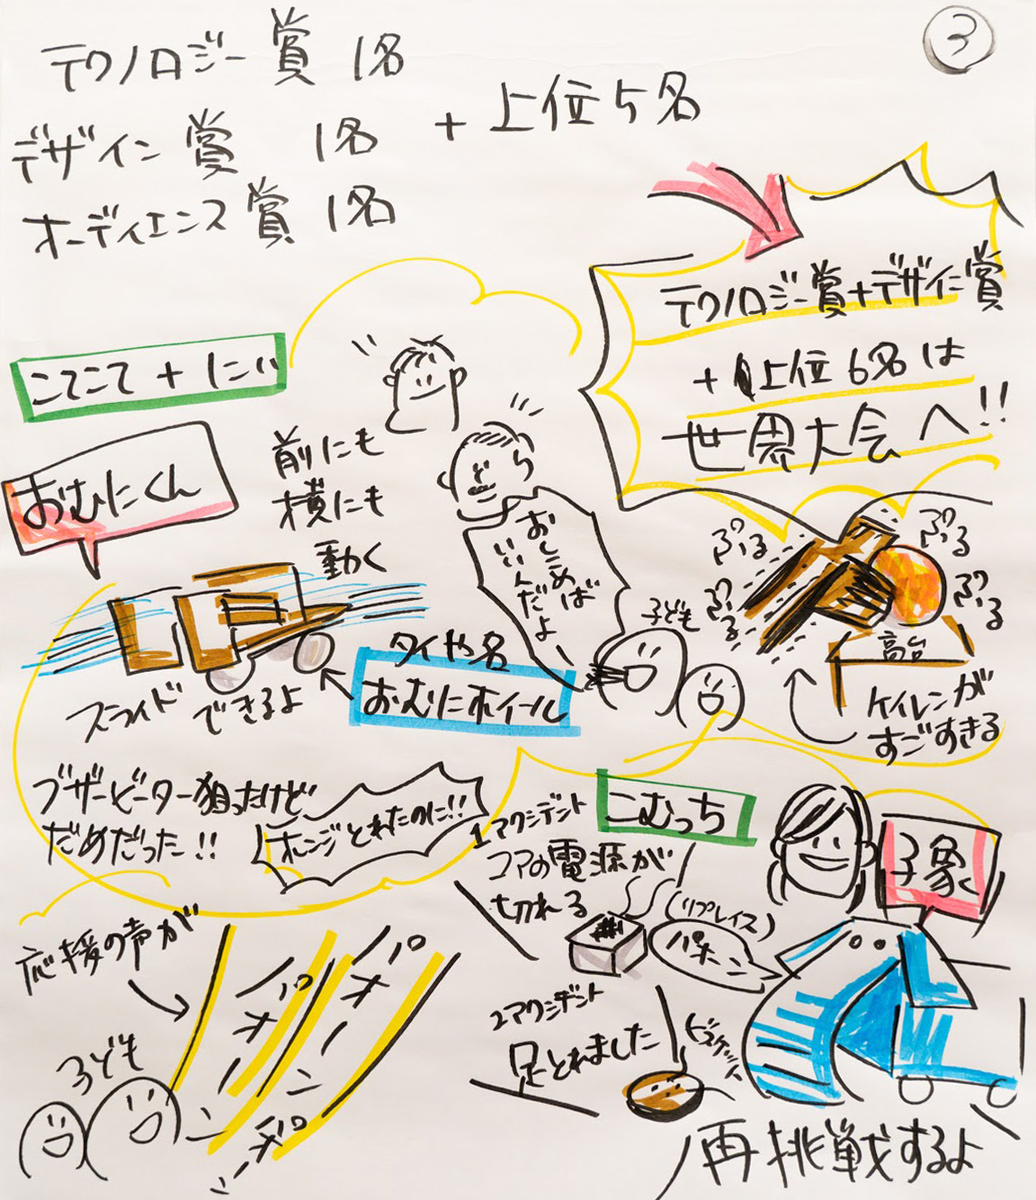 3
テクノロジー賞 1名
デザイン賞 1名
オーディエンス賞 1名
+ 上位5名
テクノロジー賞+デザイン賞
+ 上位6名は
世界大会へ!!
こてこて + にい
おむにくん
前にも
横にも
動く
おしこめば
いいんだよ
子ども
ぷる
ぷる
ぷる
ぷる
高台
ケイレンが
すごすぎる
スライドできるよ
タイヤ名
おむにホイール
ブザービーター狙ったけど
だめだった!!
オレンジとれたのに!!
こむっち
1アクシデント
コアの電源が
切れる
(リプレイス)
パオーン
子象
2アクシデント
足とれました
ビスケット
再挑戦するよ
応援の声が
子ども